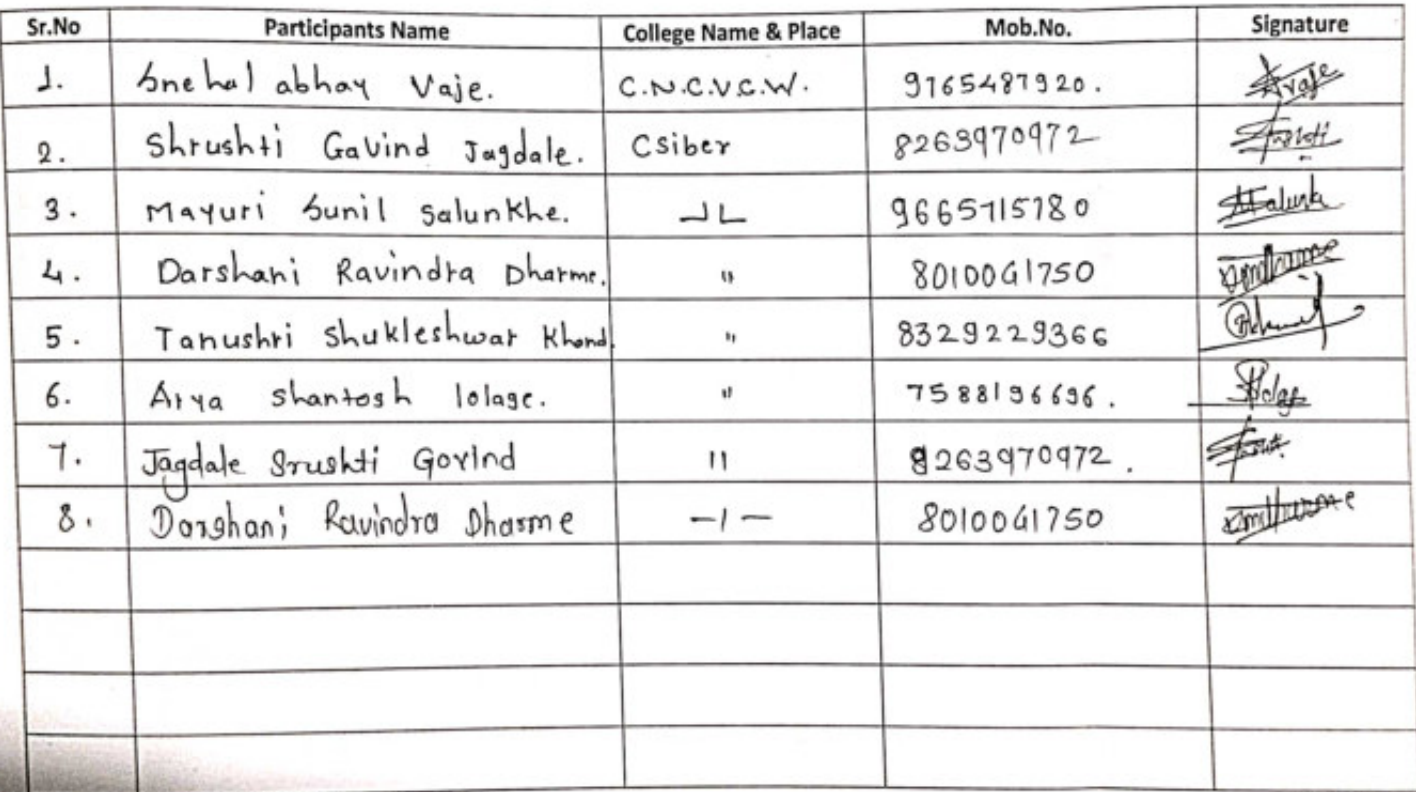 Sr.No Participants Name College Name & Place Mob.No. Signature
1. Snehal abhay Vaje. C.N.C.V.C.W. 9765487920.
2. Shrushti Gavind Jagdale. Csiber 8263970972
3. Mayuri Sunil Salunkhe. ⅃L 9665715780
4. Darshani Ravindra Dharme. " 8010061750
5. Tanushri Shukleshwar Khond. " 8329229366
6. Arya Shantosh lolage. " 7588196696.
7. Jagdale Srushti Govind " 8263970972.
8. Darshani Ravindra Dharme -1- 8010061750